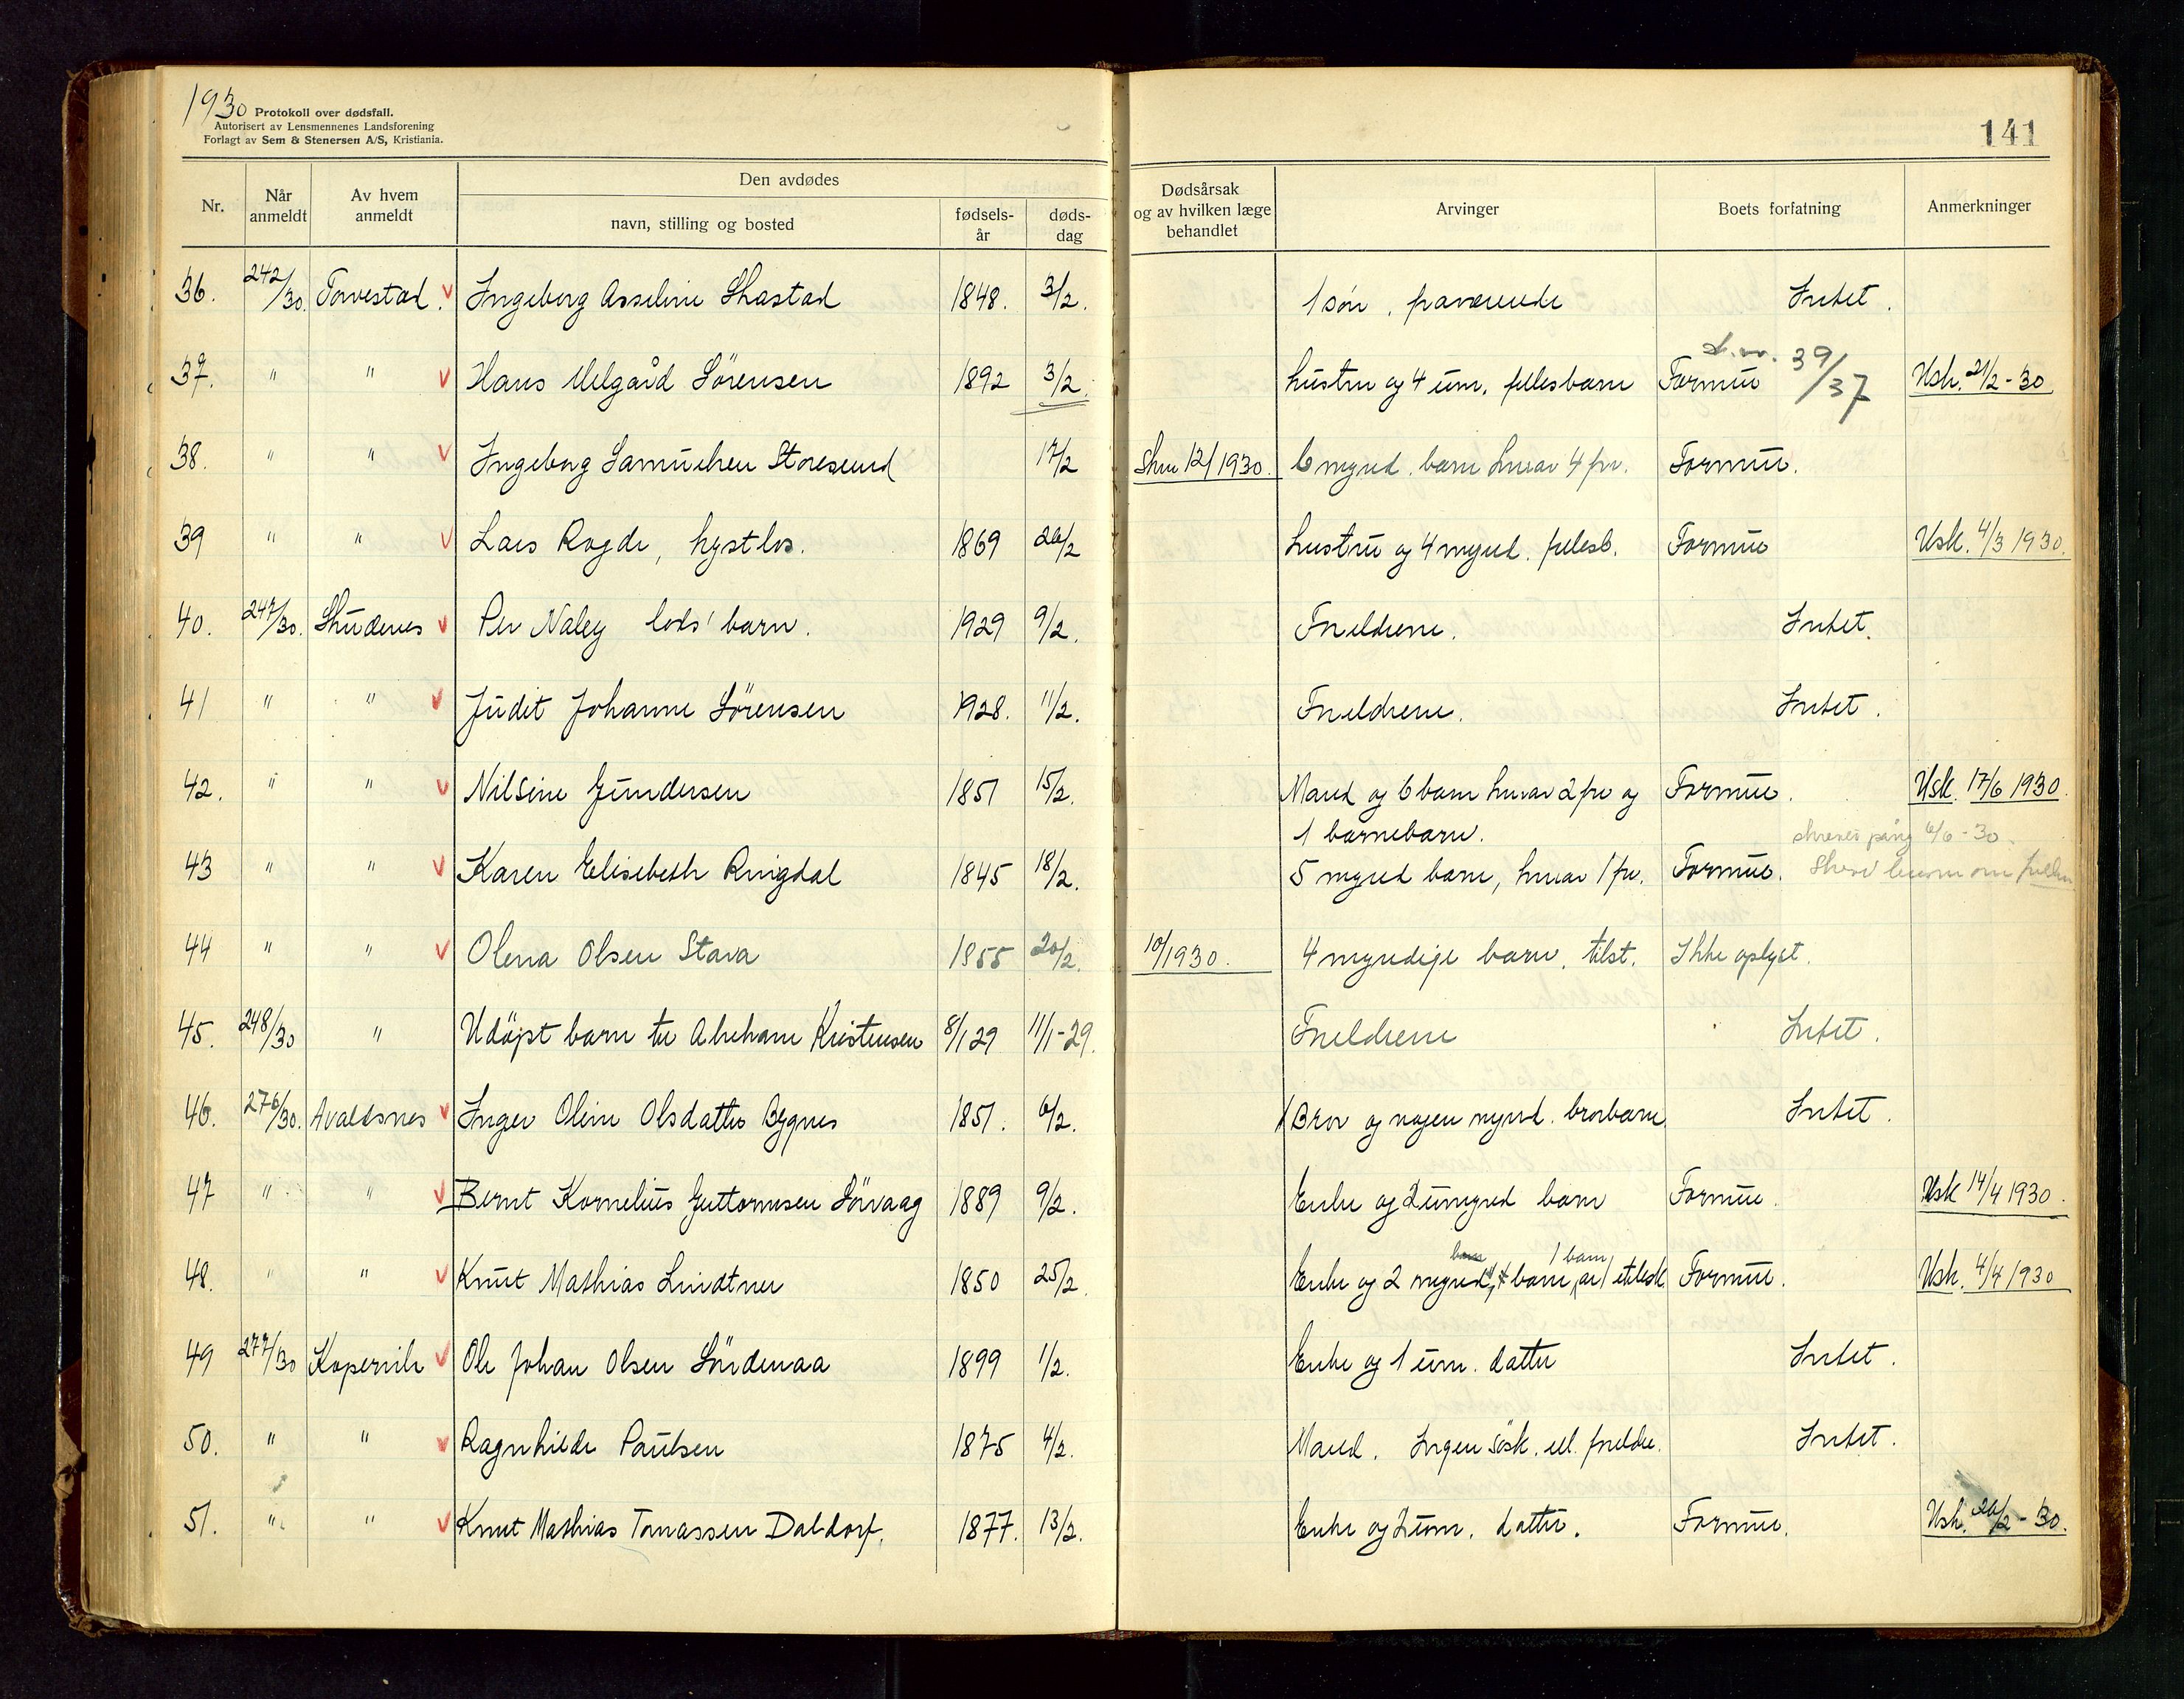 1930 Protokoll over dødsfall.
Autorisert av Lensmennenes Landsforening
Forlagt av Sem & Stenersen A/S, Kristiania.
141
Nr. Når anmeldt Av hvem anmeldt Den avdødes navn, stilling og bosted fødsels-år døds-dag Dødsårsak og av hvilken læge behandlet Arvinger Boets forfatning Anmerkninger
36. 242/30. Torvestad. Ingeborg Asseline 1848. 3/2. 1 sön, fraværende Intet.
39/37
37. " " Hans Melgård Sörensen 1892 3/2. hustru og 4 um. fellesbarn Formue Usk. 21/2-30
38. " " Ingeborg Samuelsen Storesund 17/2 Skm 12/1930. 6 mynd. barn hvorav 4 frv. Formue.
39 " " Lars Rogde, 1869 26/2 hustru og 4 mynd. fellesb. Formue Usk. 4/3 1930.
40. 247/30. Skudenes Per Naley lods' barn. 1929 9/2. Foreldrene. Intet.
41 " " Judit Johanne Sörensen 1928. 11/2. Foreldrene. Intet.
42. " " Nilsine Gundersen 1851 15/2. Mand og 6 barn hvorav 2 frv og Formue. Usk. 17/6 1930.
1 barnebarn. skrevet 6/6-30.
43 " " Karen Elisebeth Ringdal 1845 18/2. 5 mynd barn, hvorav 1 frv. Formue.
44 " " Olena Olsen Stava 1855 20/2. 10/1930. 4 myndige barn, tilst. Ikke oplyst.
45. 248/30 " Udöpt barn til Abraham Kristensen 8/1 29 11/1-29. Foreldrene Intet.
46. 276/30. Avaldsnes Inger Oline Olsdatter Bygnes 1851. 6/2. 1 Bror og nogen mynd. brorbarn. Intet.
47 " " Bernt Kornelius Guttormsen Sörvaag 1889 9/2. Enke og 2 umynd barn Formue. Usk 14/4 1930.
barn 1 barn
48. " " Knut Mathias Lindtner 1850 25/2. Enke og 2 mynd, 4 barn, av Formue. Usk. 4/4 1930
49 277/30 Kopervik Ole Johan Olsen Söndenaa 1899 1/2. Enke og 1 um. datter Intet.
50. " " Ragnhilde Paulsen 1875 4/2. Mand. Ingen sösk. ell. foreldre. Intet.
51. " " Knut Mathias Tomassen Daldorf. 1877. 13/2. Enke og 2 um. datter. Formue. Usk. 26/2-30.